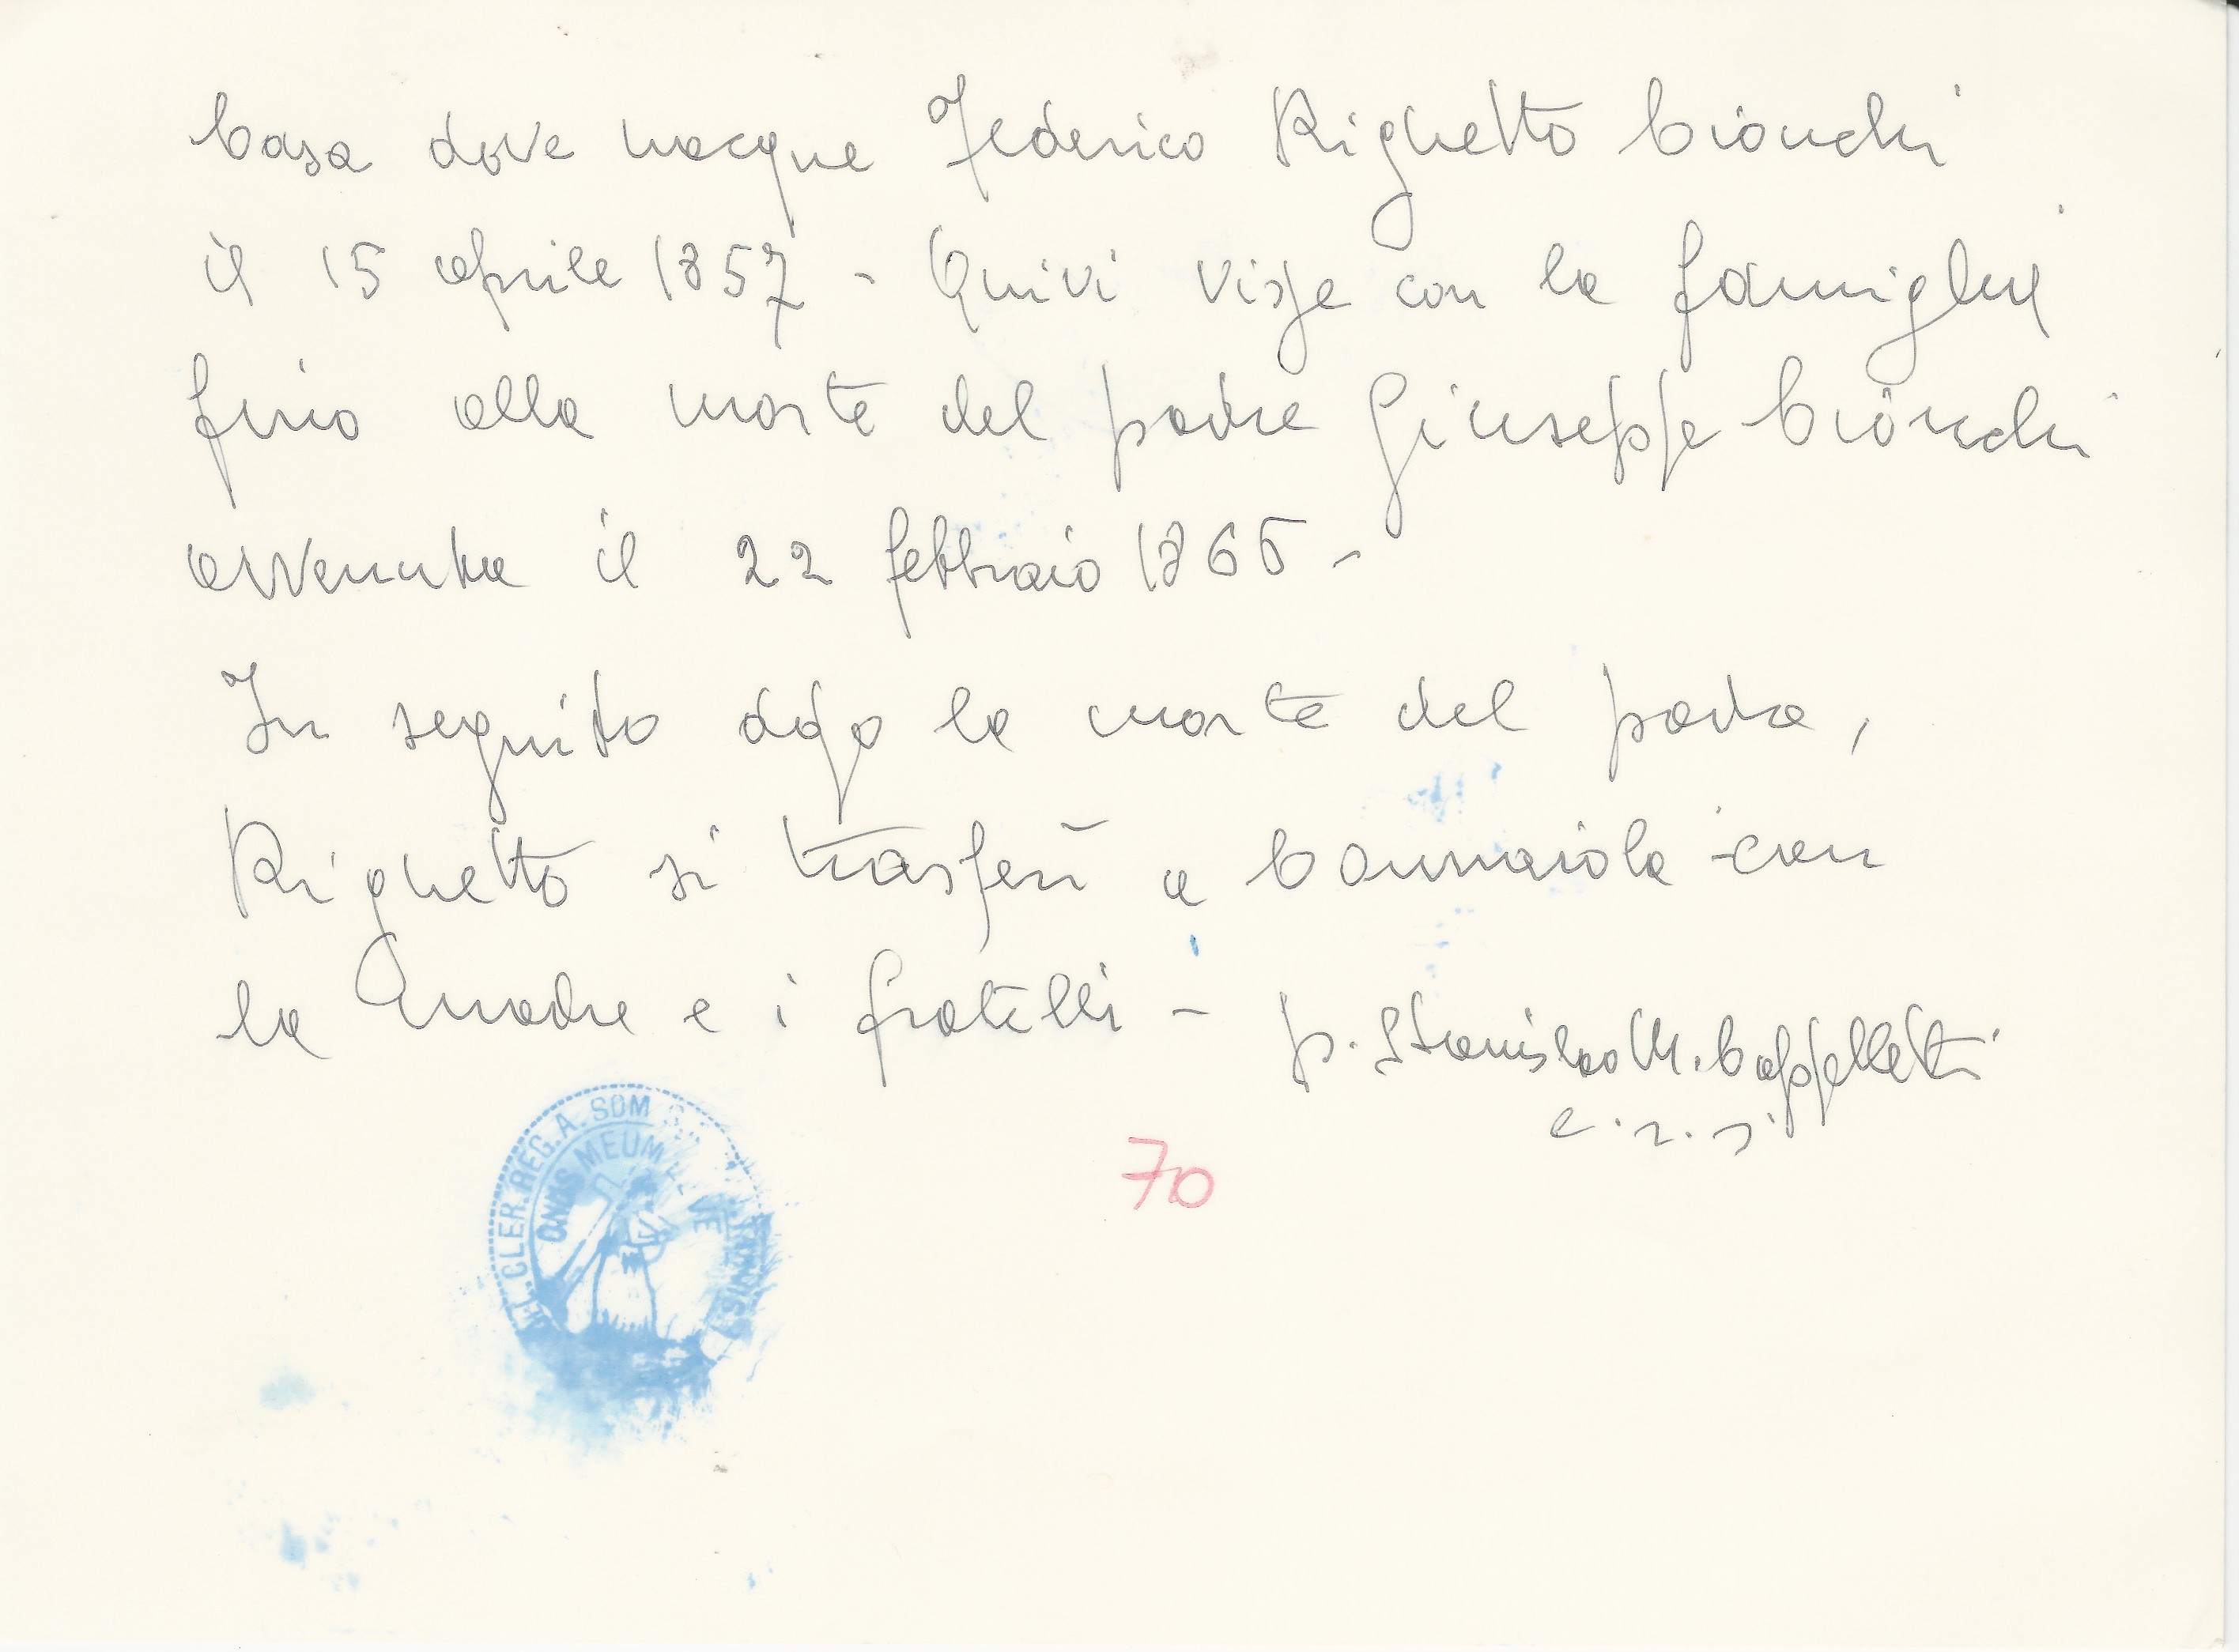 Casa dove nacque Federico Righetto Cionchi
il 15 aprile 1857 - Quivi visse con la famiglia
fino alla morte del padre Giuseppe Cionchi
avvenuta il 22 febbraio 1865 -
In seguito dopo la morte del padre,
Righetto si trasferì a Cannaiola con
la Madre e i fratelli -
p. Stanislao M. Cappelletti
c.r.s.
70
CLER. REG. A. SOM
ONUS MEUM